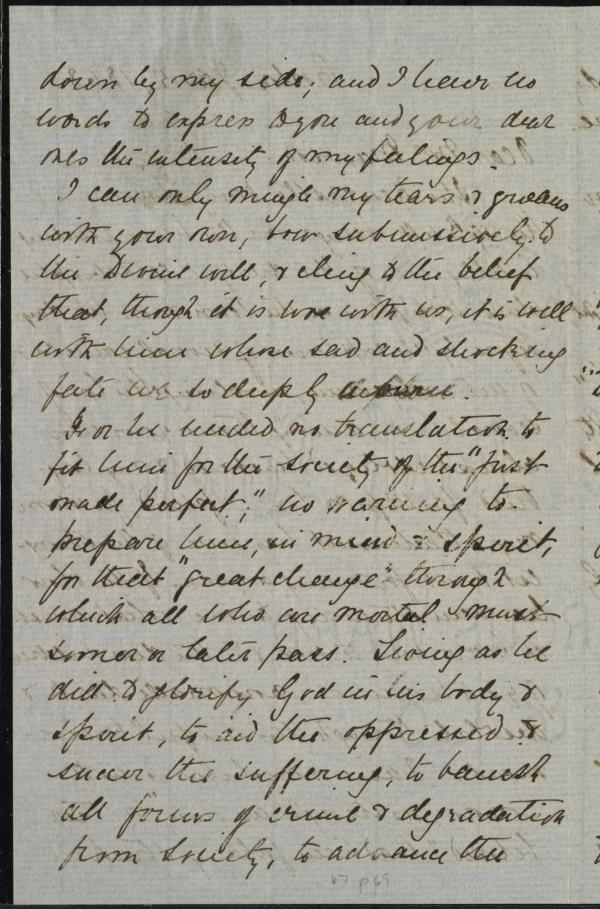 down by my side; and I have no
words to express to you and your dear
ones the intensity of my feelings.
I can only mingle my tears & groans
with your own, bow submissively to
the Divine will, & cling to the belief
that, though it is woe with us, it is well
with him whose sad and shocking
fate we so deeply
For he needed no translation to
fit him for the society of the "just
made perfect;" no warning to
prepare him, in mind & spirit,
for that "great change" through
which all who are mortal must
sooner or later pass. Living as he
did to glorify God in his body &
spirit, to aid the oppressed &
succor the suffering, to banish
all forms of crime & degradation
from society, to advance the